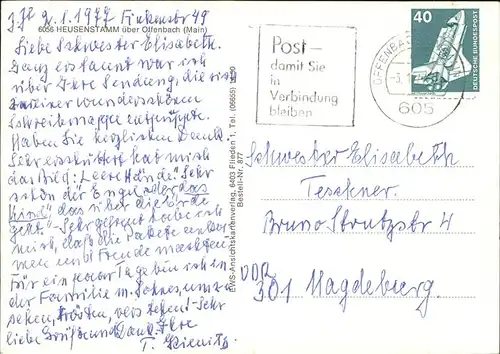 z.Zt 2.1.1977 Finkenstr 49
6056 HEUSENSTAMM über Offenbach (Main)
Liebe Schwester Elisabeth.
Ganz erstaunt war ich
über Ihre Sendung, die sich
zu einer wunderschönen
Schreibmappe entpuppte.
Haben Sie herzlichen Dank.
Sehr erschüttert hat mich
das Bild: Leere Hände. Sehr
schön der Engel oder das
Kind", das über die Erde
geht" Sehr gefreut habe ich
mich, daß die Pakete ankamen
und Freude machten,
Für ein paar Tage bin ich in
der Familie m. Sohnes, umzusehen,
trösten, verstehen! Sehr
liebe Grüße und Dank. Ihre
T.
EWS-Ansichtskartenverlag, 6403 Flieden 1, Tel. (06655)
Bestell-Nr. 877
Post –
damit Sie
in
Verbindung
bleiben
OFFENBACH
605
40
DEUTSCHE BUNDESPOST
Schwester Elisabeth
Teschner.
Bruno Strutzstr 4
DDR
301 Magdeburg